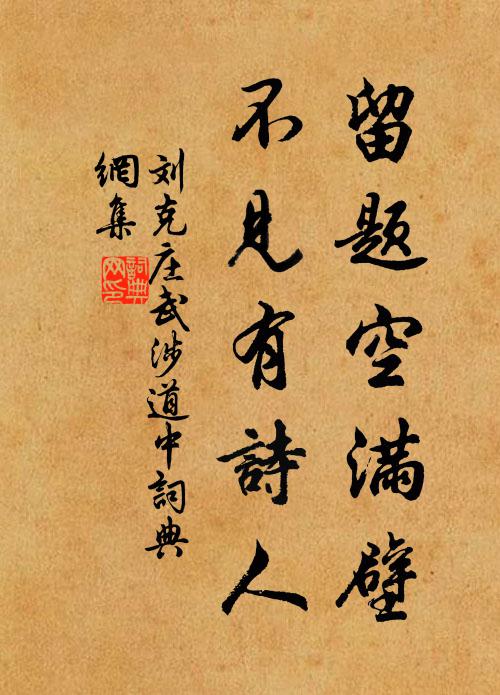 留题空满壁
不见有詩人
刘克庄武涉道中詞典
網集
詞典网印